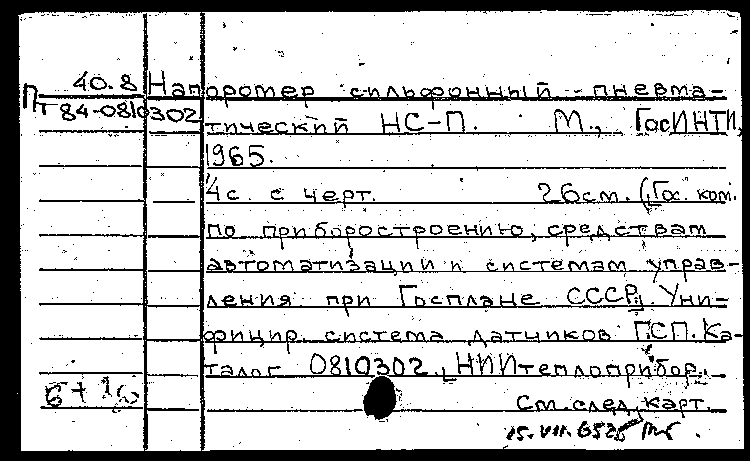 40.8 Напоромер сильфонный - пневма-
Пт 84-0810302 тический НС-П. М., ГосИНТИ,
1965.
4с. с черт. 26см. (Гос. ком.
по приборостроению, средствам
автоматизации и системам управ-
ления при Госплане СССР). Уни-
фицир. система датчиков ГСП. Ка-
талог 0810302. [НИИтеплоприбор].
См. след. карт.
15.VII.